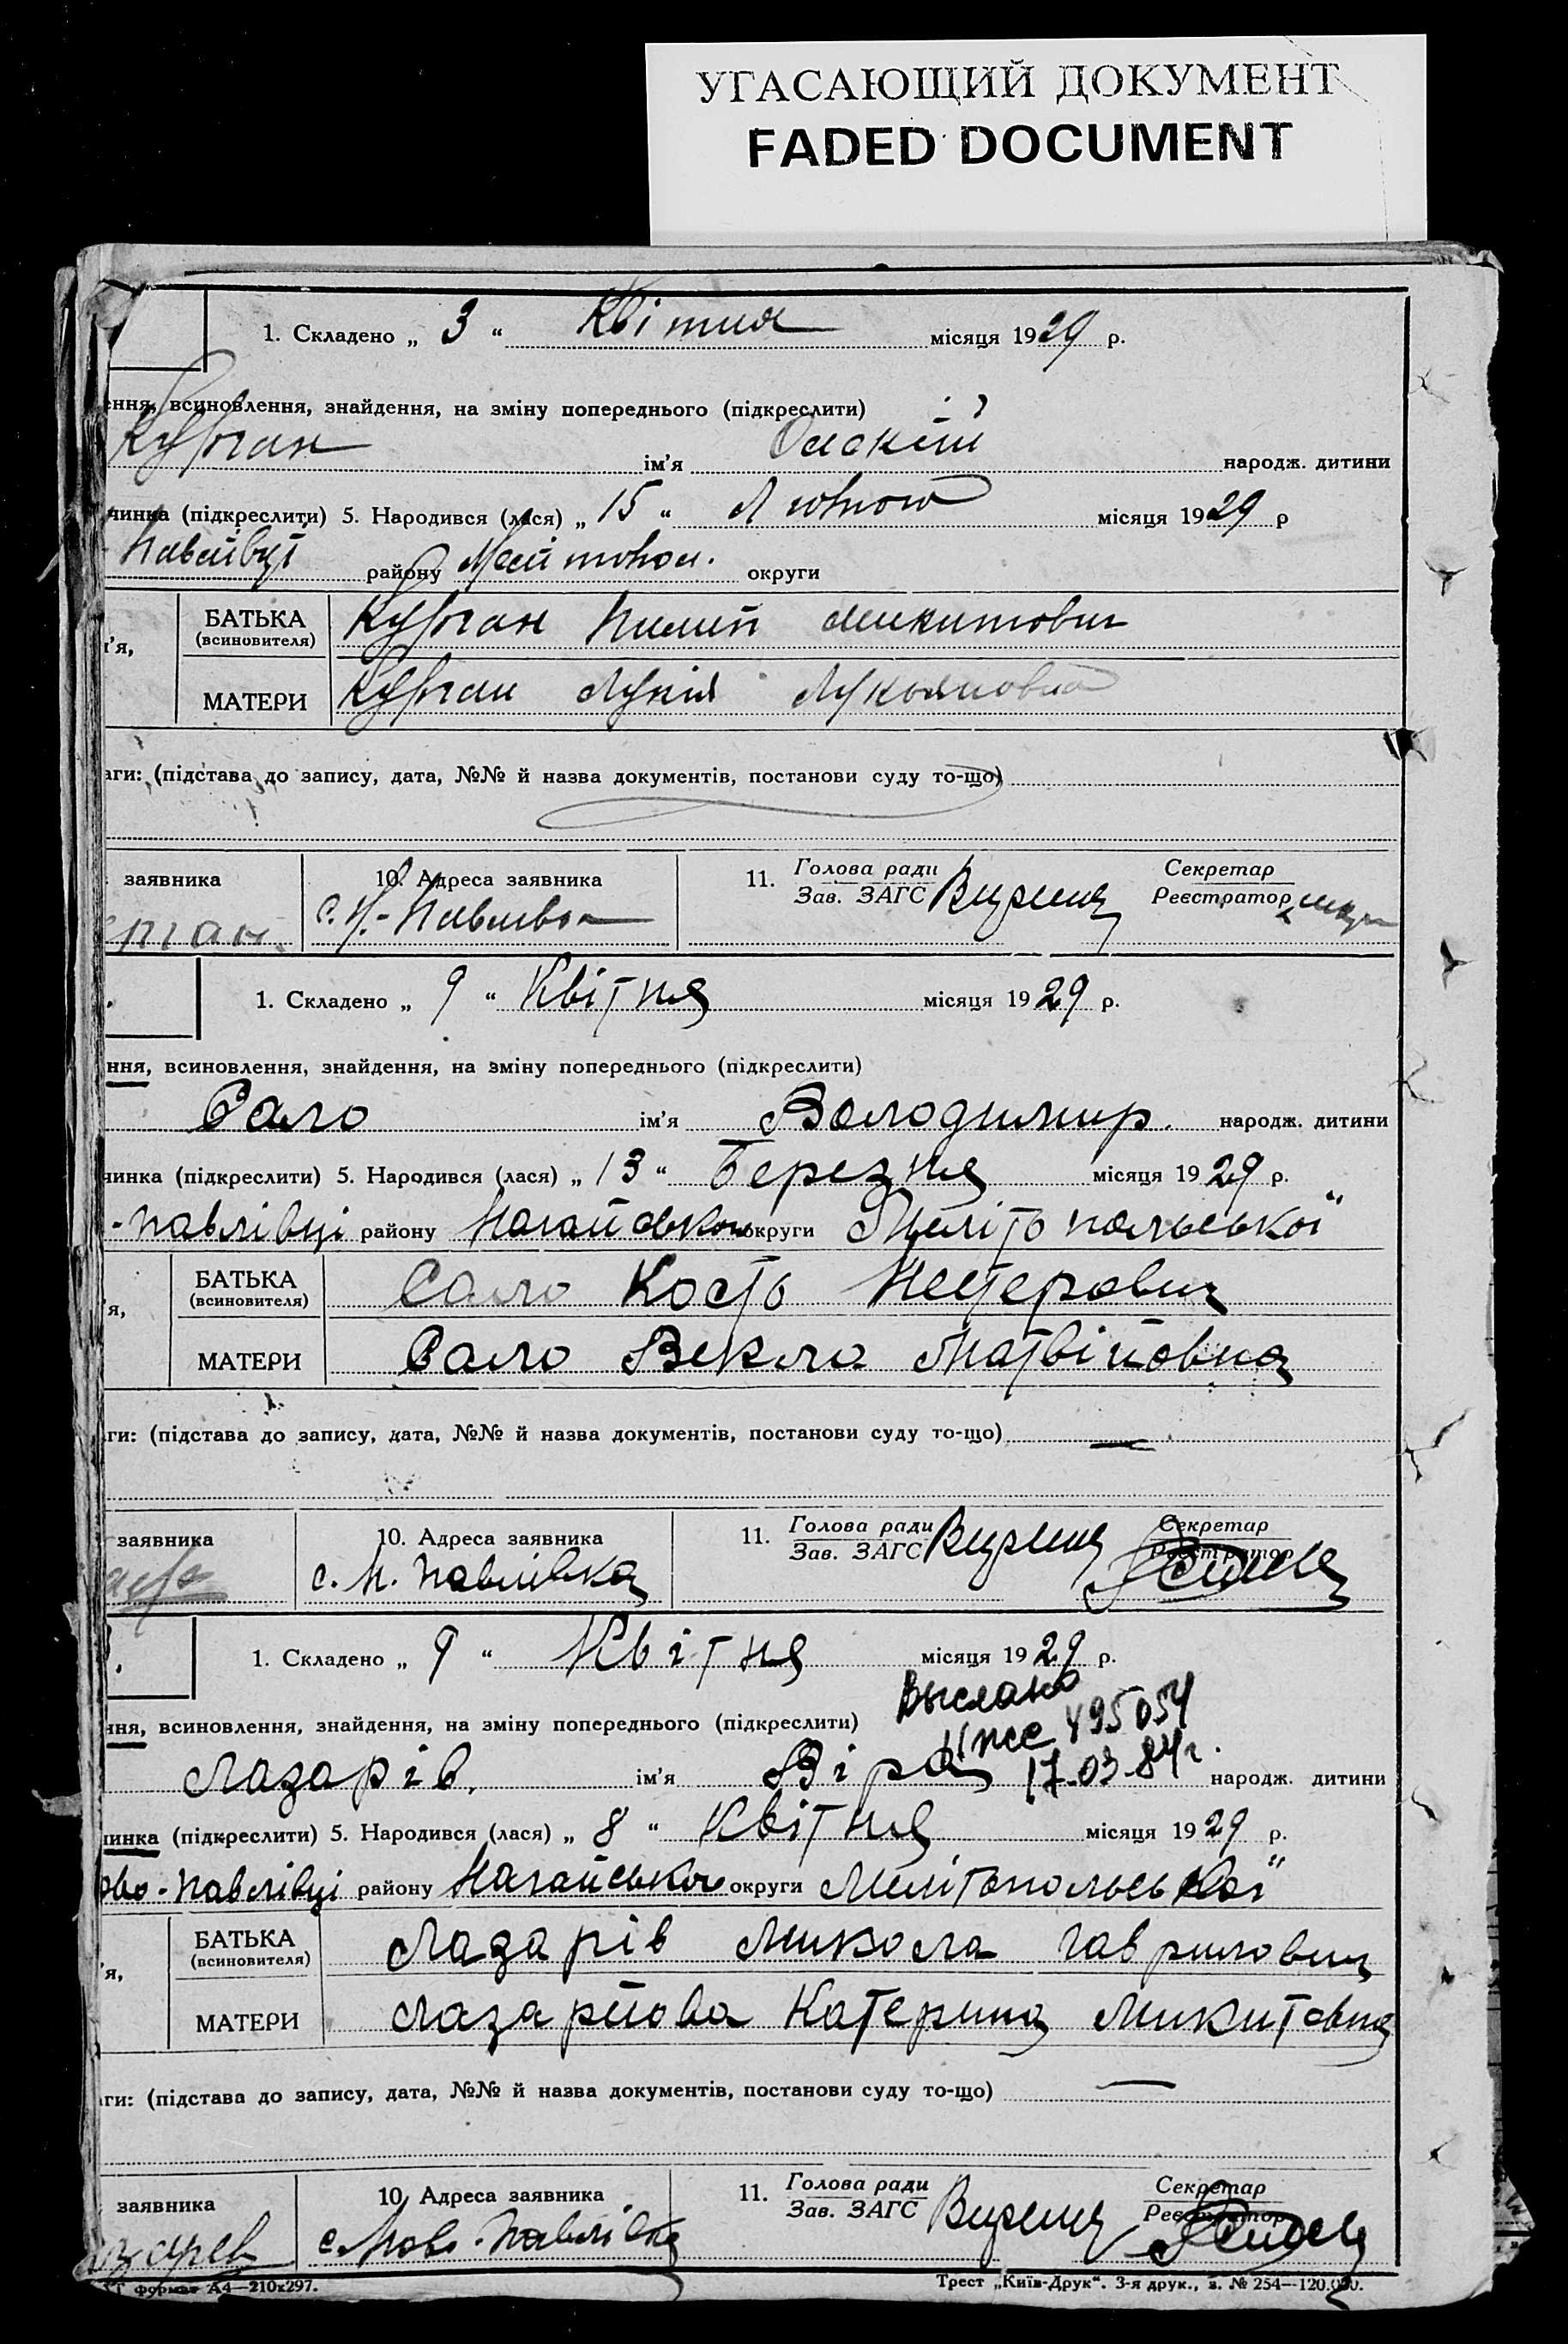 УГАСАЮЩИЙ ДОКУМЕНТ
FADED DOCUMENT
1. Складено „ 3 “ Квітня місяця 1929 р.
ення, всиновлення, знайдення, на зміну попереднього (підкреслити)
Курган ім’я Олексій народж. дитини
чинка (підкреслити) 5. Народився (лася) „ 15 “ Лютого місяця 1929 р
- Павлівці району Мелітопол. округи
’я, БАТЬКА (всиновителя) Курган Пилип Микитович
МАТЕРИ Курган Лукія Лукьяновна
аги: (підстава до запису, дата, №№ й назва документів, постанови суду то-що)
заявника 10. Адреса заявника 11. Голова ради Секретар
Зав. ЗАГС Реєстратор
с. Н.-Павлівка
ерган.
1. Складено „ 9 “ Квітня місяця 1929 р.
ння, всиновлення, знайдення, на зміну попереднього (підкреслити)
Сало ім’я Володимир. народж. дитини
чинка (підкреслити) 5. Народився (лася) „ 13 “ Березня місяця 1929 р.
-Павлівці району Нагайського округи Мелітопольської
’я, БАТЬКА (всиновителя) Сало Кость Нестерович
МАТЕРИ Сало Векла Матвійовна
аги: (підстава до запису, дата, №№ й назва документів, постанови суду то-що) —
заявника 10. Адреса заявника 11. Голова ради Секретар
Зав. ЗАГС Реєстратор
с. Н. Павлівка
1. Складено „ 9 “ Квітня місяця 1929 р.
Выслано
ння, всиновлення, знайдення, на зміну попереднього (підкреслити)
495054
Лазарів. ім’я Віра 17-03-84г. народж. дитини
чинка (підкреслити) 5. Народився (лася) „ 8 “ Квітня місяця 1929 р.
ово-Павлівці району Нагайського округи Мелітопольської
’я, БАТЬКА (всиновителя) Лазарів Микола Гаврилович
МАТЕРИ Лазарйова Катерина Микитовна
аги: (підстава до запису, дата, №№ й назва документів, постанови суду то-що) —
заявника 10. Адреса заявника 11. Голова ради Секретар
Зав. ЗАГС Реєстратор
с. Ново-Павлівка
азарев
формат А4—210х297. Трест „Київ-Друк“. 3-я друк., з. № 254—120.000.